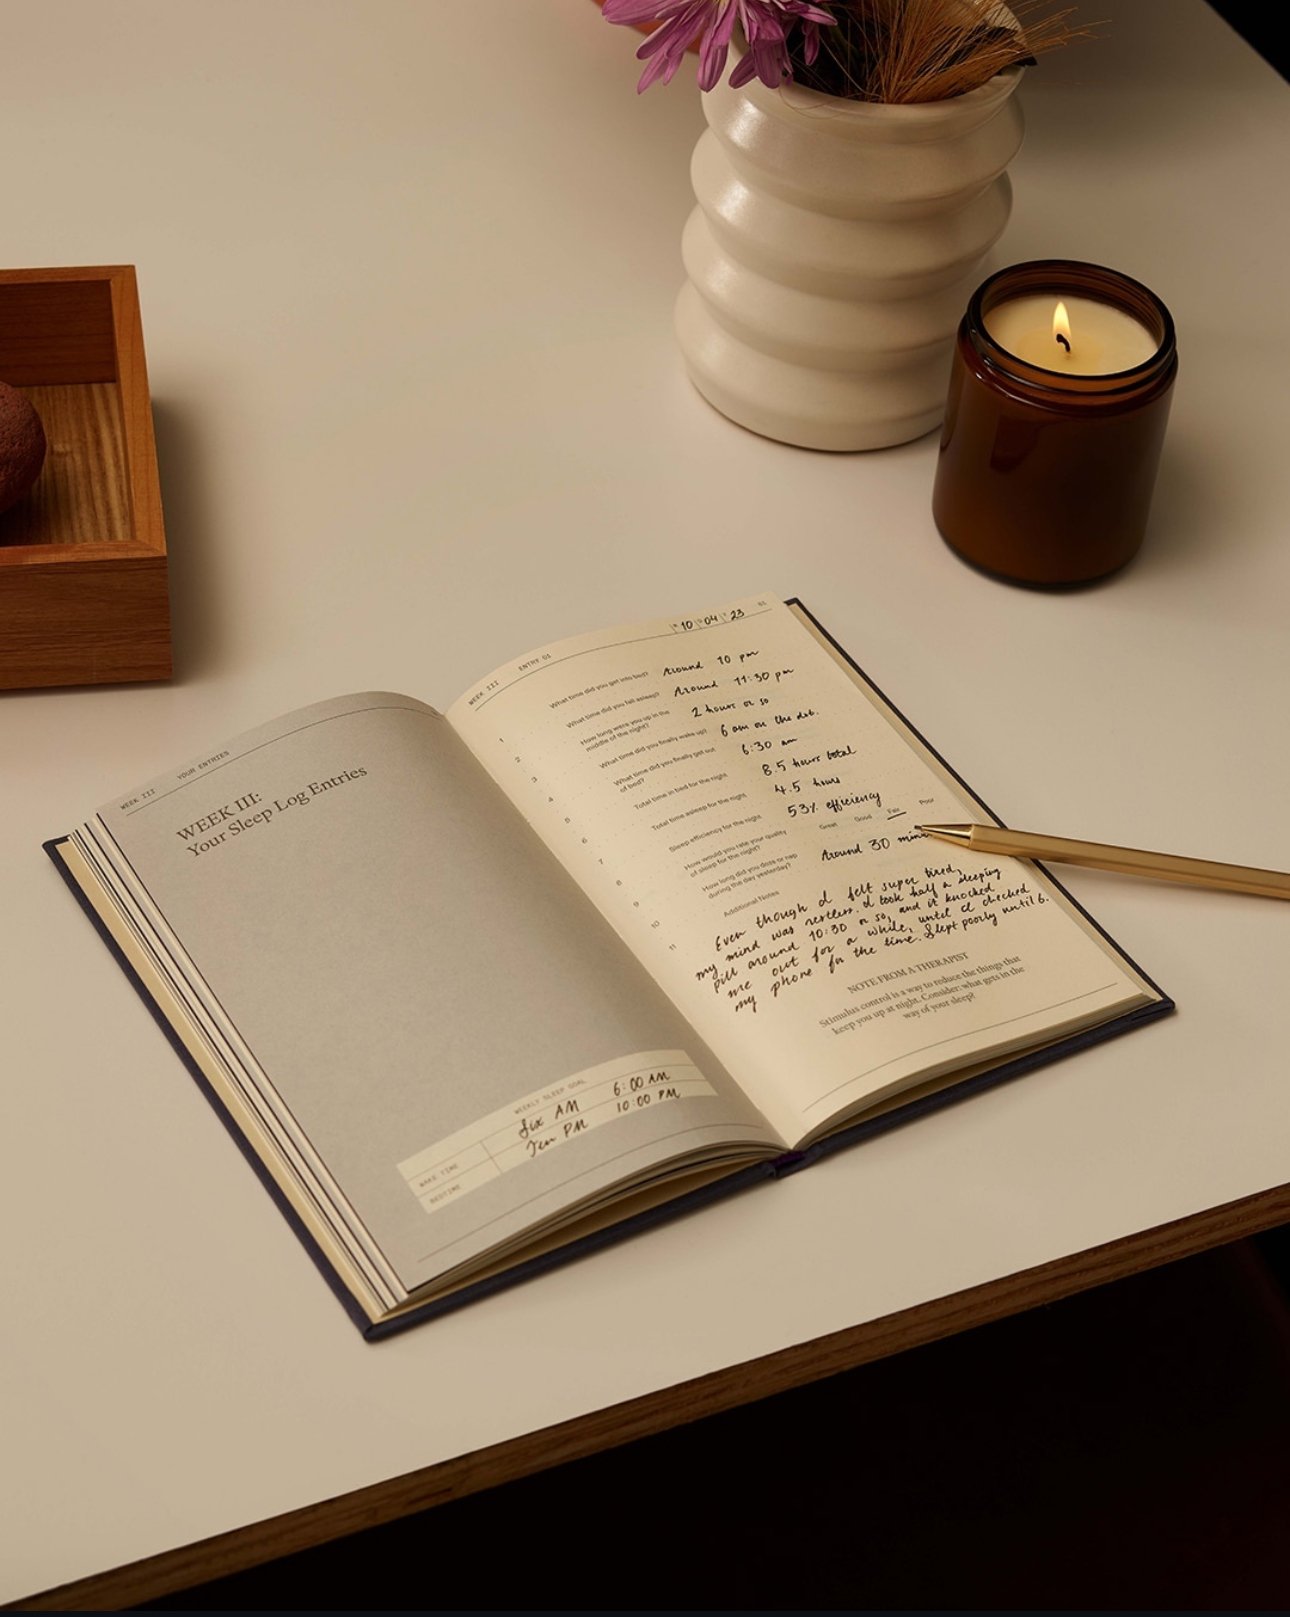 WEEK III YOUR ENTRIES
WEEK III:
Your Sleep Log Entries
WEEKLY SLEEP GOAL
WAKE TIME Six AM 6:00 AM
BEDTIME Ten PM 10:00 PM
WEEK III ENTRY 01 10 04 23 81
1 What time did you get into bed? Around 10 pm
2 What time did you fall asleep? Around 11:30 pm
3 How long were you up in the
middle of the night? 2 hours or so
4 What time did you finally wake up? 6 am on the dot.
5 What time did you finally get out
of bed? 6:30 am
6 Total time in bed for the night 8.5 hours total
7 Total time asleep for the night 4.5 hours
8 Sleep efficiency for the night 53% efficiency
9 How would you rate your quality
of sleep for the night? Great Good Fair Poor
10 How long did you doze or nap
during the day yesterday? Around 30
11 Additional Notes
Even though I felt super tired,
my mind was restless. I took half a sleeping
pill around 10:30 or so, and it knocked
me out for a while, until I checked
my phone for the time. Slept poorly until 6.
NOTE FROM A THERAPIST
Stimulus control is a way to reduce the things that
keep you up at night. Consider: what gets in the
way of your sleep?